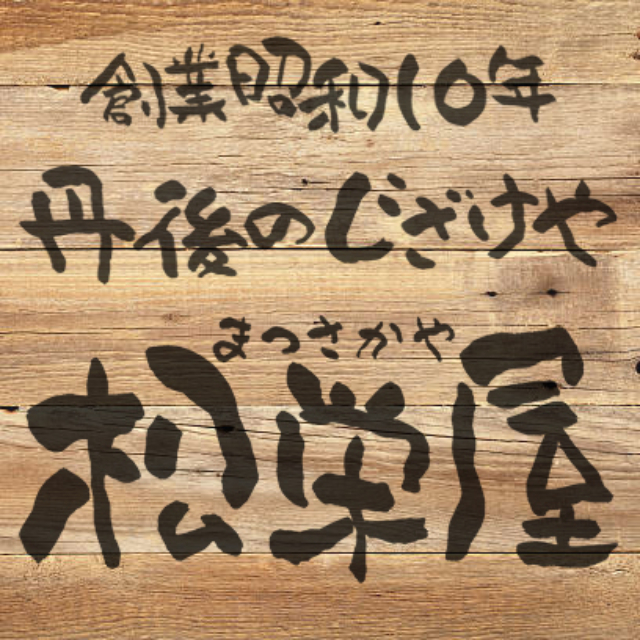 創業昭和10年
丹後のじざけや
まつさかや
松栄屋